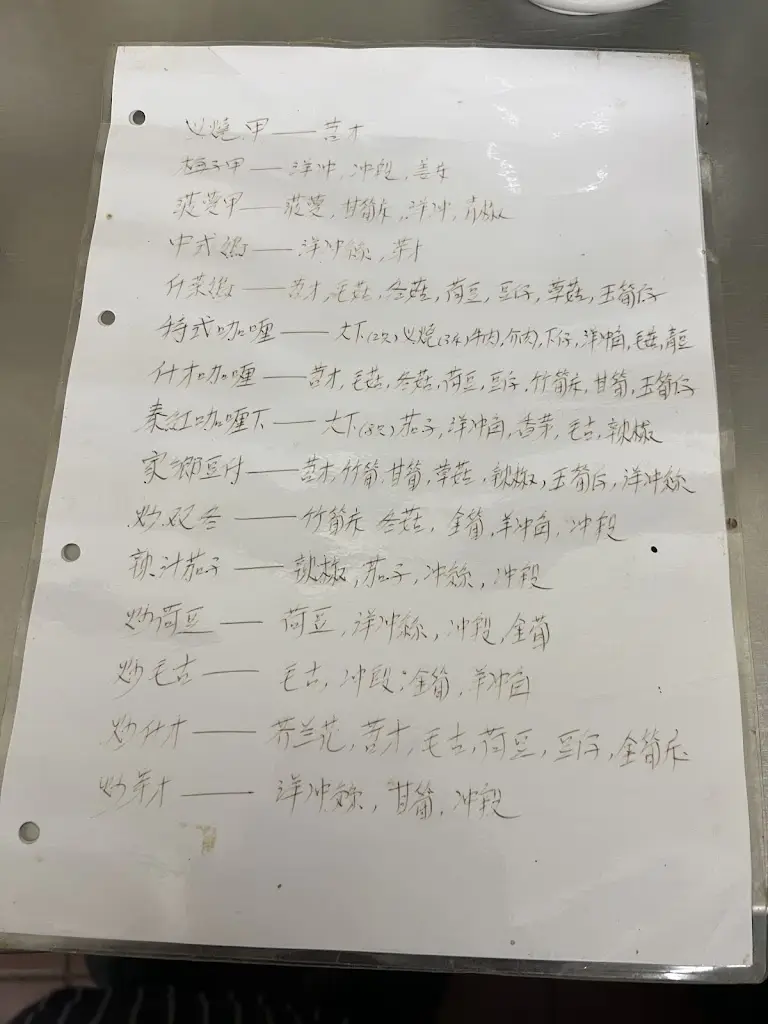 义烧甲——苦才
梅子甲——洋冲,冲段,姜
菠萝甲——菠萝,甘笋片,洋冲,青椒
中式——洋冲絲,芽
什菜——苦才,毛菇,冬菇,荷豆,豆仔,草菇,玉笋仔
特式咖喱——大下(2只)义烧(3件)牛肉,介肉,下仔,洋冲角,毛菇,青豆
什才咖喱——苦才,毛菇,冬菇,荷豆,豆仔,竹笋片,甘笋,玉笋仔
泰紅咖喱下——大下(8只)茄子,洋冲角,香菜,毛古,辣椒
家鄉豆付——苦才,竹笋,甘笋,草菇,辣椒,玉笋仔,洋冲絲
炒双冬——竹笋片 冬菇,金笋,羊冲角,冲段
辣汁茄子——辣椒,茄子,冲絲,冲段
炒荷豆——荷豆,洋冲絲,冲段,金笋
炒毛古——毛古,冲段,金笋,羊冲角
炒什才——芥兰花,苦才,毛古,荷豆,豆仔,金笋片
炒芽才——洋冲絲,甘笋,冲段